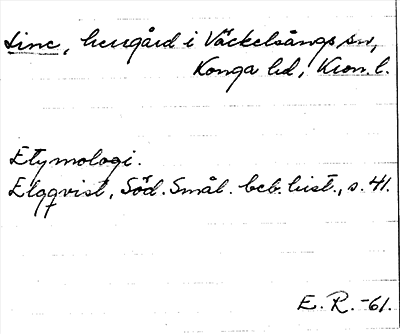 Linc, herrgård i Väckelsångs sn,
Konga hd, Kron. l.
Etymologi.
Elgqvist, Söd. Smål. beb. hist., s. 41.
E. R. -61.